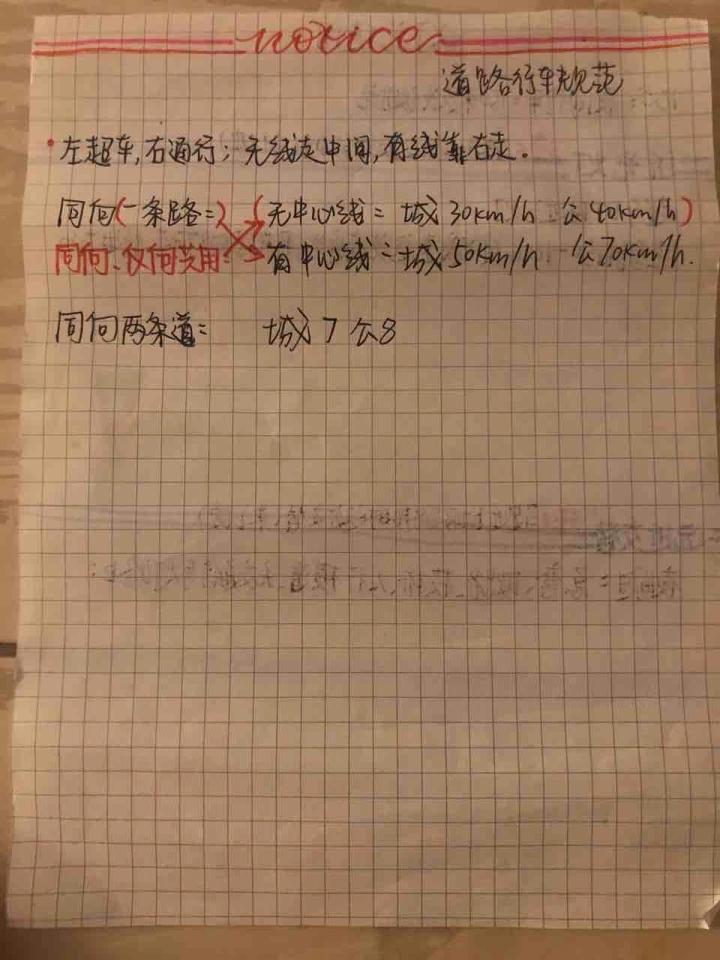 notice
道路行车规范
• 左超车,右通行; 无线走中间,有线靠右走.
同向(一条路=) (无中心线= 城30km/h 公40km/h)
同向、仅向共用= 有中心线= 城50km/h 公70km/h.
同向两条道= 城7 公8